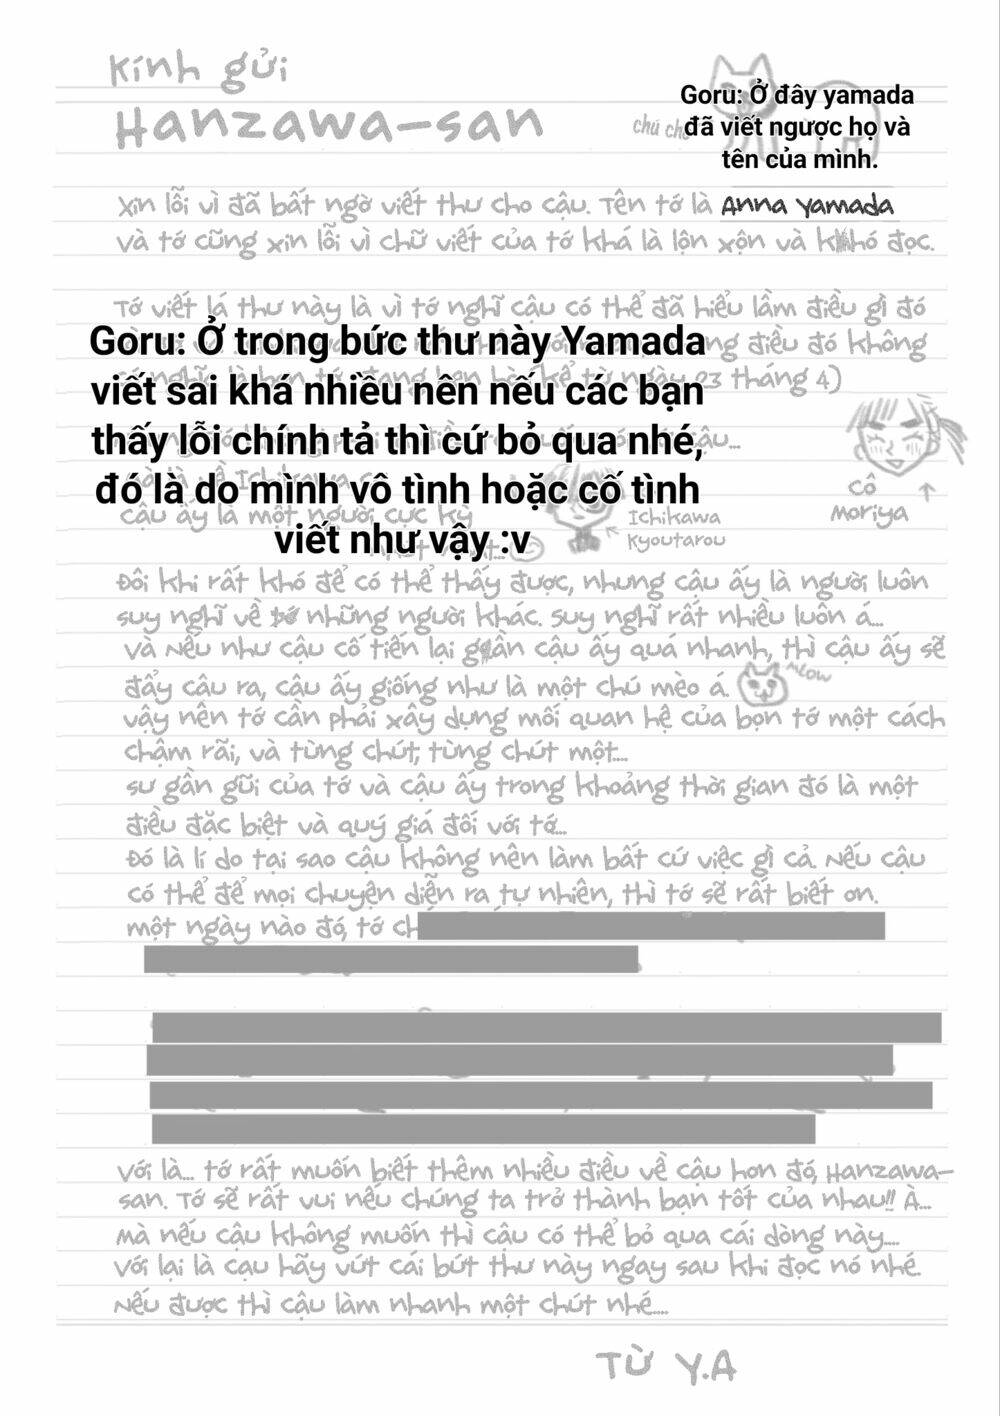 Kính gửi
Hanzawa-san
chú chó
Goru: Ở đây yamada
đã viết ngược họ và
tên của mình.
Xin lỗi vì đã bất ngờ viết thư cho cậu. Tên tớ là Anna Yamada
và tớ cũng xin lỗi vì chữ viết của tớ khá là lộn xộn và khó đọc.
Tớ viết lá thư này là vì tớ nghĩ cậu có thể đã hiểu lầm điều gì đó
điều đó không
kể từ ngày 23 tháng 4)
Goru: Ở trong bức thư này Yamada
viết sai khá nhiều nên nếu các bạn
thấy lỗi chính tả thì cứ bỏ qua nhé,
đó là do mình vô tình hoặc cố tình
viết như vậy :v
cậu...
cậu ấy là một người cực kỳ
Ichikawa
Kyoutarou
cô
Moriya
Đôi khi rất khó để có thể thấy được, nhưng cậu ấy là người luôn
suy nghĩ về những người khác. Suy nghĩ rất nhiều luôn á...
và nếu như cậu cố tiến lại gần cậu ấy quá nhanh, thì cậu ấy sẽ
đẩy cậu ra, cậu ấy giống như là một chú mèo á.
meow
vậy nên tớ cần phải xây dựng mối quan hệ của bọn tớ một cách
chậm rãi, và từng chút, từng chút một....
sự gần gũi của tớ và cậu ấy trong khoảng thời gian đó là một
điều đặc biệt và quý giá đối với tớ...
Đó là lí do tại sao cậu không nên làm bất cứ việc gì cả. Nếu cậu
có thể để mọi chuyện diễn ra tự nhiên, thì tớ sẽ rất biết ơn.
một ngày nào đó, tớ ch
Với là... tớ rất muốn biết thêm nhiều điều về cậu hơn đó, Hanzawa-
san. Tớ sẽ rất vui nếu chúng ta trở thành bạn tốt của nhau!! À...
Mà nếu cậu không muốn thì cậu có thể bỏ qua cái dòng này....
Với lại là cạu hãy vứt cái bút thư này ngay sau khi đọc nó nhé.
Nếu được thì cậu làm nhanh một chút nhé....
Từ Y.A